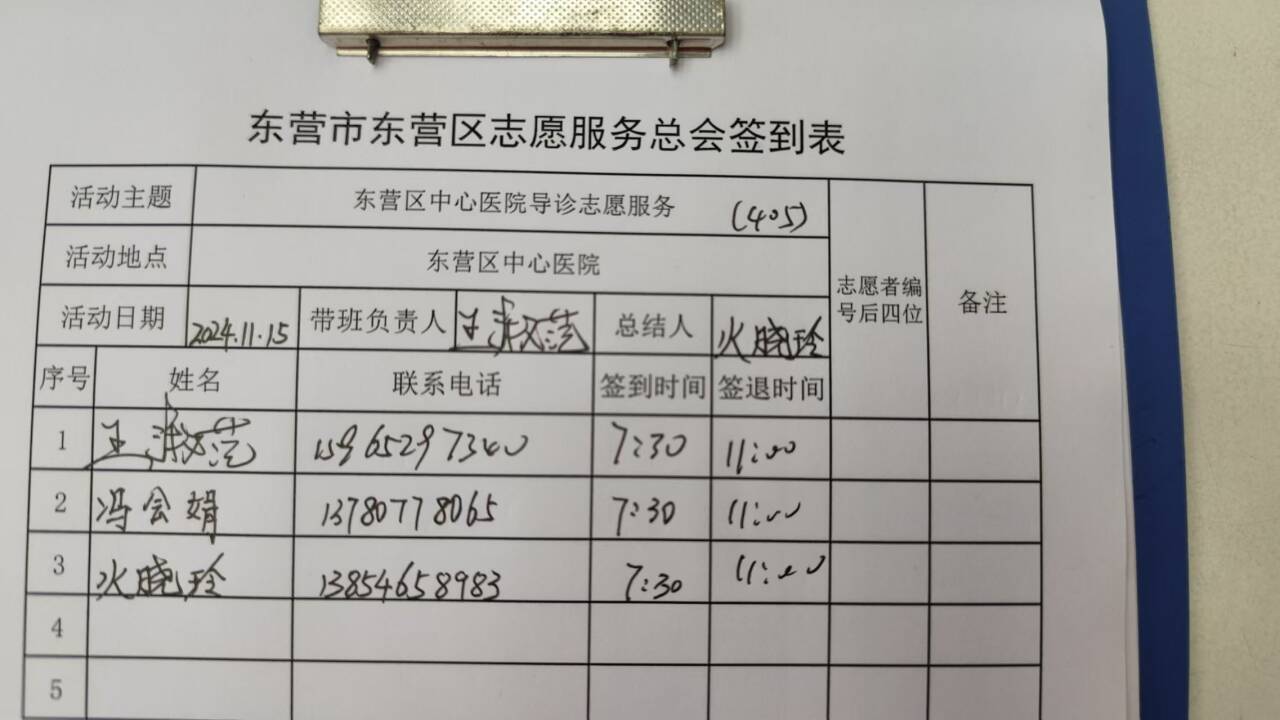 东营市东营区志愿服务总会签到表
活动主题 东营区中心医院导诊志愿服务 (405)
活动地点 东营区中心医院
志愿者编号后四位 备注
活动日期 2024.11.15 带班负责人 王淑范 总结人 火晓玲
序号 姓名 联系电话 签到时间 签退时间
1 王淑范 15965297340 7:30 11:00
2 冯会娟 13780778065 7:30 11:00
3 火晓玲 13854658983 7:30 11:00
4
5